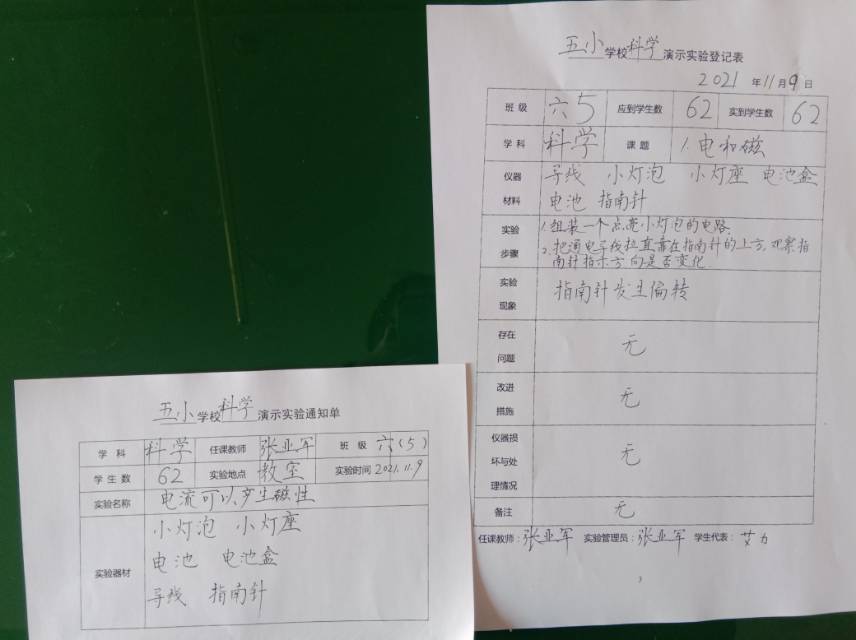 五小学校科学演示实验登记表
2021年11月9日
班级 六5 应到学生数 62 实到学生数 62
学科 科学 课题 1.电和磁
仪器材料 导线 小灯泡 小灯座 电池盒
电池 指南针
实验步骤 1.组装一个点亮小灯泡的电路.
2.把通电导线拉直靠在指南针的上方,观察指
南针指示方向是否变化
实验现象 指南针发生偏转
存在问题 无
改进措施 无
仪器损坏与处理情况 无
备注 无
任课教师:张业军 实验管理员:张业军 学生代表:艾力
五小学校科学演示实验通知单
学科 科学 任课教师 张业军 班级 六(5)
学生数 62 实验地点 教室 实验时间 2021.11.9
实验名称 电流可以产生磁性
实验器材 小灯泡 小灯座
电池 电池盒
导线 指南针